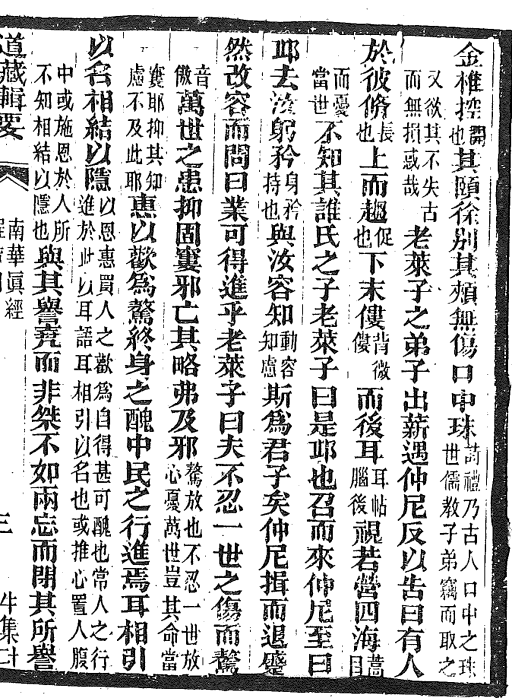 金椎控開也其頤徐別其頰無傷口中珠詩禮乃古人口中之珠世儒教子弟竊而取之
又欲其不失古而無損或哉老萊子之弟子出薪遇仲尼反以告曰有人
於彼脩長上而趨促也下末僂背微僂而後耳耳帖腦後視若營四海蒿目
而憂當世不知其誰氏之子老萊子曰是邱也召而來仲尼至曰
邱去汝躬矜身矜持也與汝容知動容知慮斯爲君子矣仲尼揖而退蹙
然改容而問曰業可得進乎老萊子曰夫不忍一世之傷而驁
音傲萬世之患抑固窶邪亡其略弗及邪驁放也不忍一世放心憂萬世豈其命當
窶耶抑其知慮不及此耶惠以歡爲驁終身之醜中民之行進焉耳相引
以名相結以隱以恩惠買人之歡爲自得甚可醜也常人之行進於此以耳語耳相引以名也或推心置人腹
中或施恩於人所不知相結以隱也與其譽堯而非桀不如兩忘而閉其所譽
道藏輯要
南華眞經
三
牛集